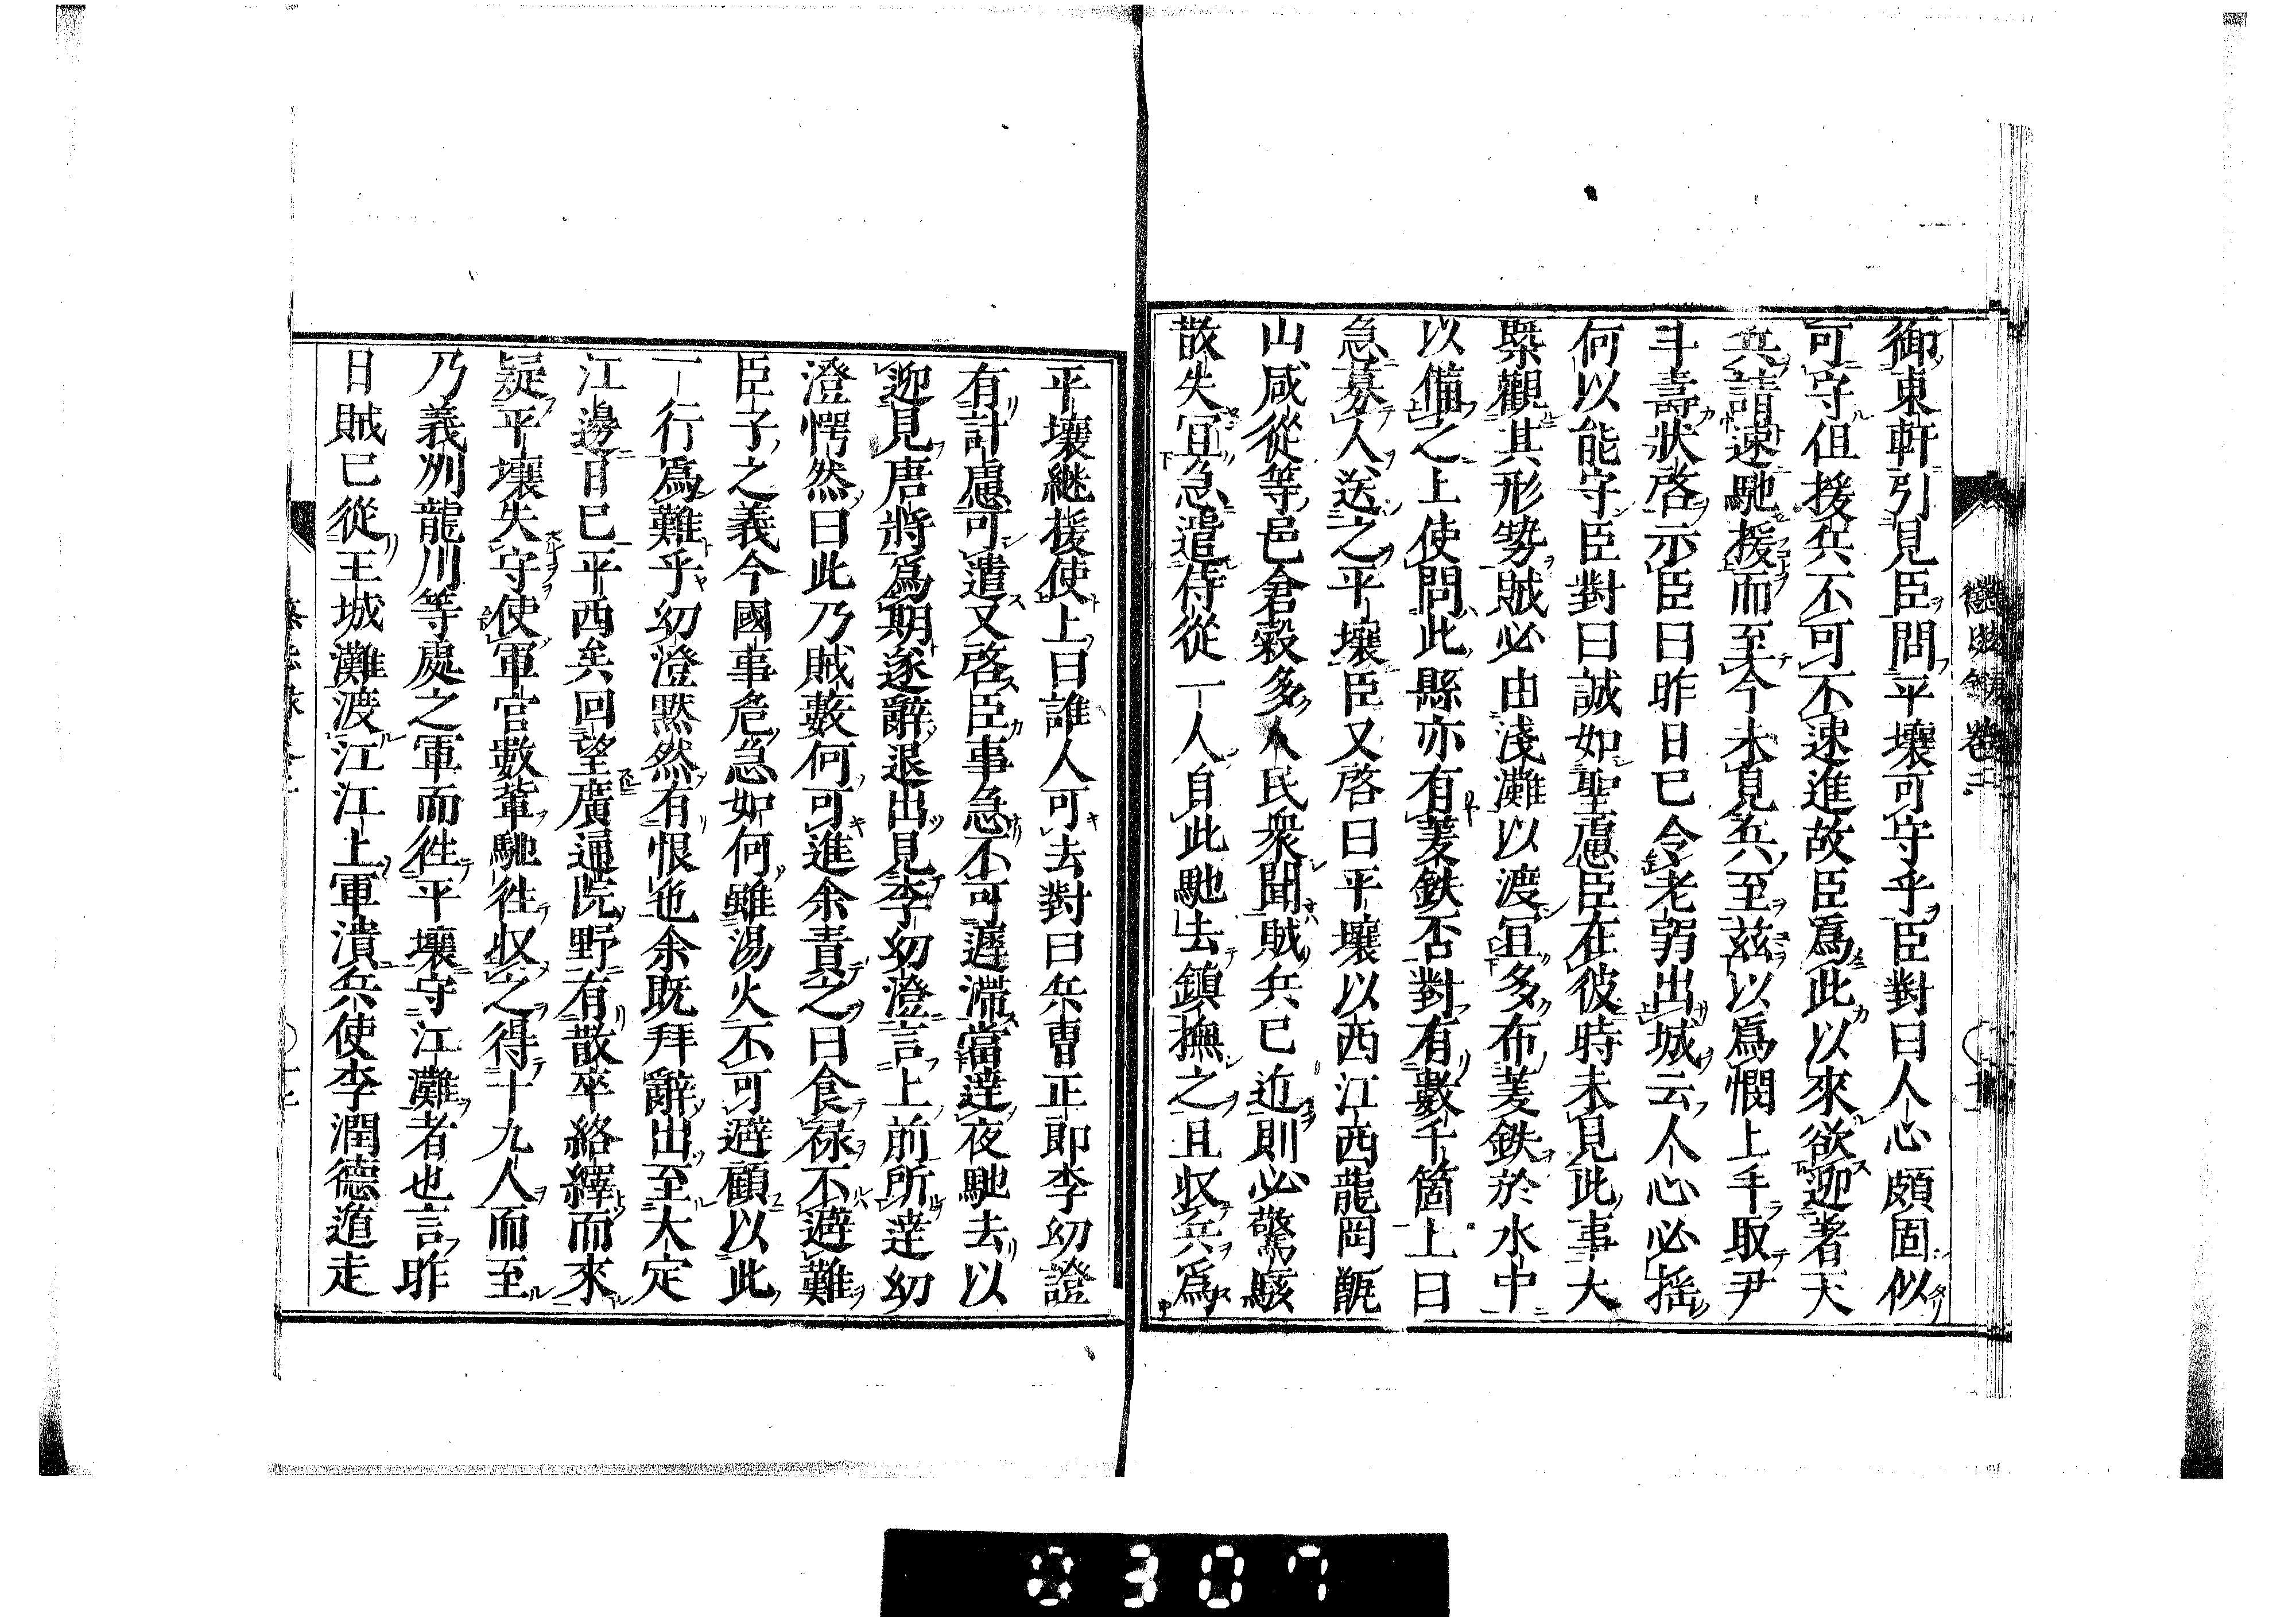 懲毖録 卷二
御東軒引見臣問平壤可守乎臣對曰人心頗固似
可守但援兵不可不速進故臣爲此以來欲迎著天
兵請速馳援而至今未見兵至茲以爲憫上手取尹
斗壽狀啓示臣曰昨日已令老弱出城云人心必揺
何以能守臣對曰誠如聖慮臣在彼時未見此事大
槩觀其形勢賊必由淺灘以渡冝多布菱鉄於水中
以備之上使問此縣亦有菱鉄否對有數千箇上曰
急募人送之平壤臣又啓曰平壤以西江西龍岡甑
山咸從等邑倉穀多人民衆聞賊兵已近則必驚駭
散失冝急遣侍從一人自此馳去鎮撫之且収兵爲
平壤継援使上曰誰人可去對曰兵曹正郎李幼證
有計慮可遣又啓臣事急不可遲滯當達夜馳去以
迎見唐將爲期遂辭退出見李幼澄言上前所達幼
澄愕然曰此乃賊藪何可進余責之曰食禄不避難
臣子之義今國事危急如何雖湯火不可避顧以此
一行爲難乎幼澄黙然有恨色余既拜辭出至大定
江邊日已平西矣回望廣通院野有散卒絡繹而來
疑平壤失守使軍官數輩馳徃収之得十九人而至
乃義州龍川等處之軍而徃平壤守江灘者也言昨
日賊已從王城灘渡江江上軍潰兵使李潤德遁走